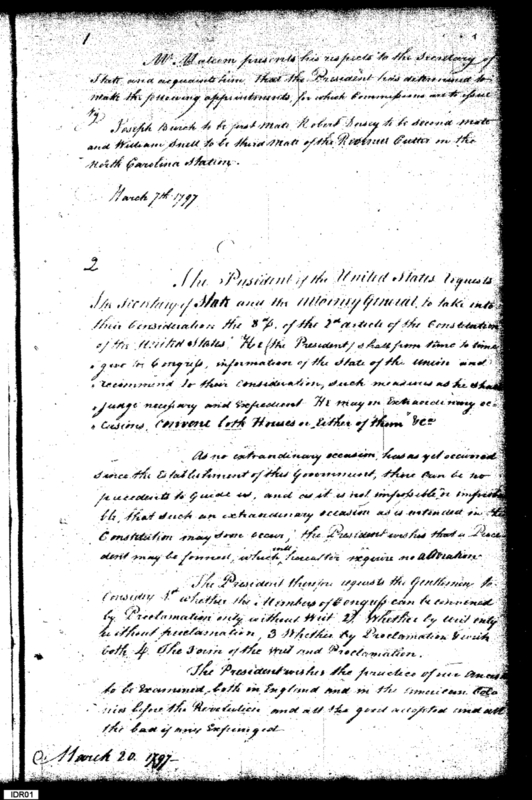 1
Mr. Malcom presents his respects to the Secretary of
State and acquaints him that the President has determined to
make the following appointments, for which Commissions are to issue
Vz
Joseph Burch to be first Mate Robert Busey to be second mate
and William Snell to be third Mate of the Revenue Cutter in the
North Carolina Station.
March 7th 1797
2
The President of the United States requests
The Secretary of State and the Attorney General, to take into
their Consideration the 3d p. of the 2d article of the Constitution
of the United States. He (the President) shall from time to time
give to Congress, information of the State of the Union and
recommend to their consideration, such measures as he shall
judge necessary and Expedient He may on Extraordinary oc-
casions, convene both Houses or Either of them &ca
As no extraordinary occasion, has as yet occurred
since the Establishment of this Government, there can be no
precedents to Guide us, and as it is not impossible or improba
ble, that such an extraordinary occasion as is intended in the
Constitution may soon occur; the President wishes that a Prece
dent may be formed, which will hereafter require no alteration
The President therefore requests the Gentlemen to
Consider 1st whether the Members of Congress can be convened
by Proclamation only without Writ 2d. Whether by writ only
& without proclamation, 3 Whether by Proclamation & writ
both, 4 The Form of the Writ and Proclamation.
The President wishes the practice of our Ancestors
to be Examined, both in England and in the American Colo
nies before the Revolution and all the good adopted and all
the bad if any Expunged
March 20. 1797
IDR01